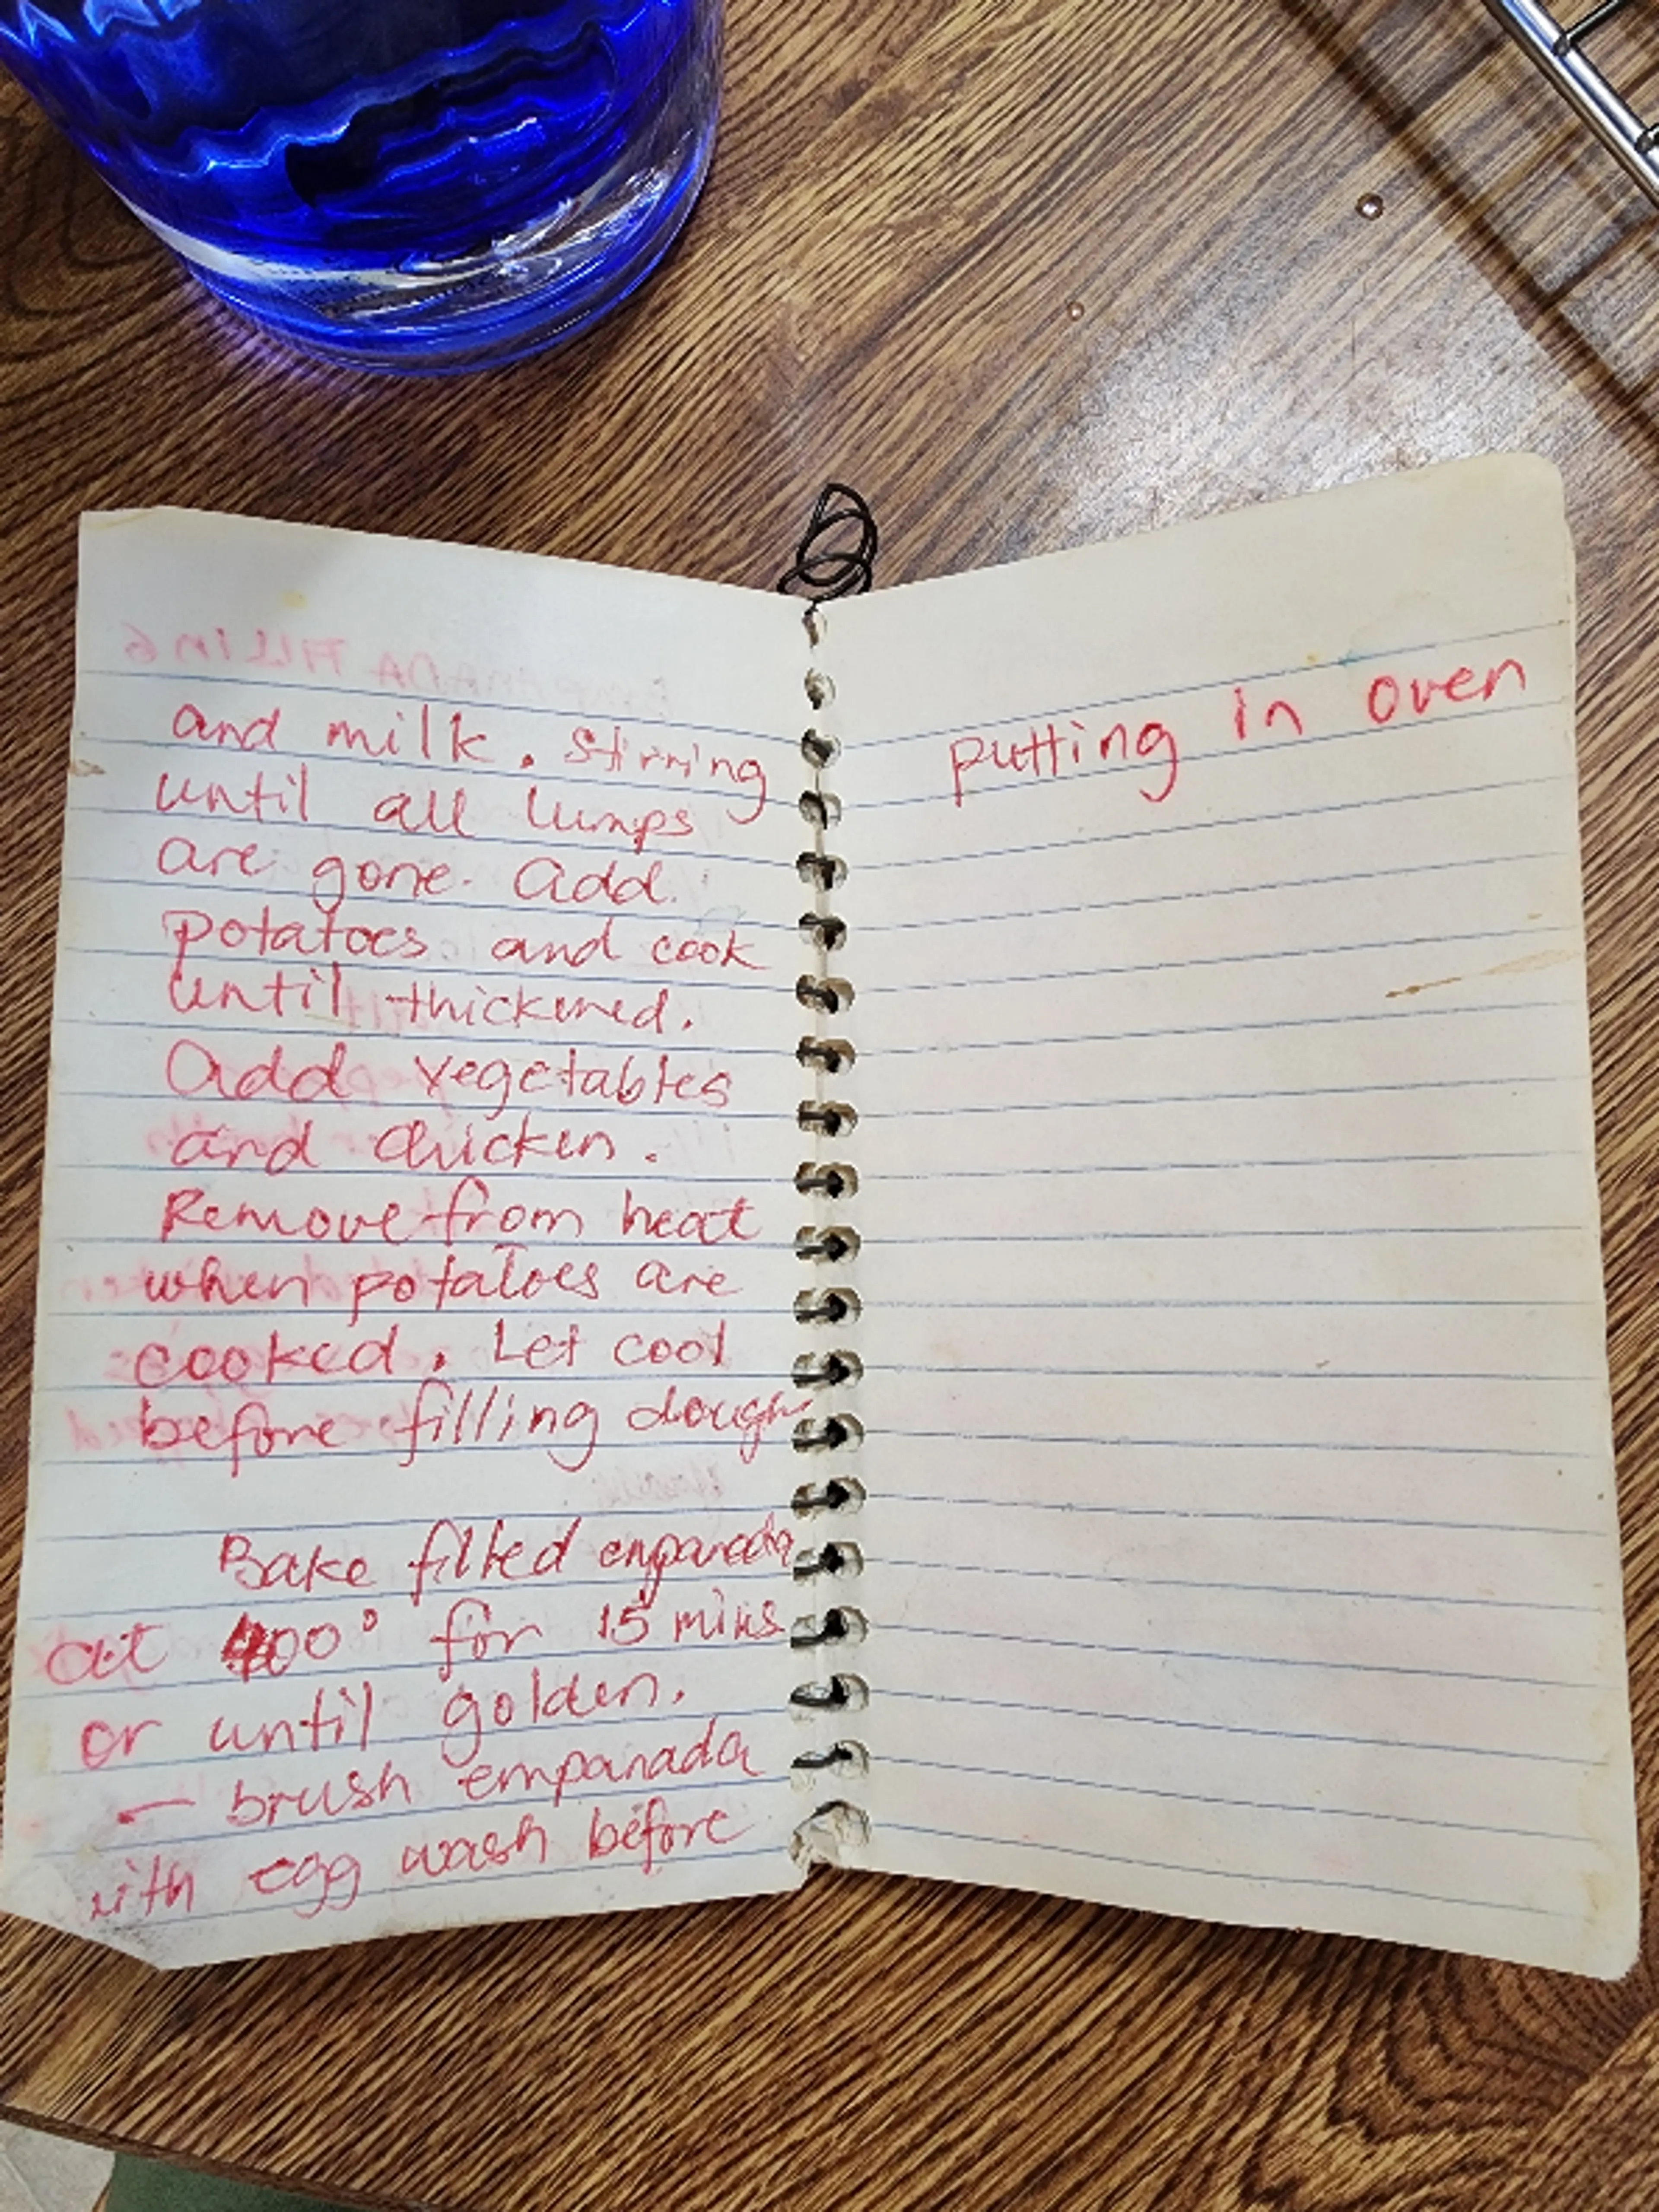 EMPANADA FILLING
and milk. Stirring
until all lumps
are gone. Add
potatoes and cook
until thickened.
Add vegetables
and chicken.
Remove from heat
when potatoes are
cooked. Let cool
before filling dough
Bake filled empanada
at 400° for 15 mins
or until golden.
— brush empanada
with egg wash before
putting in oven